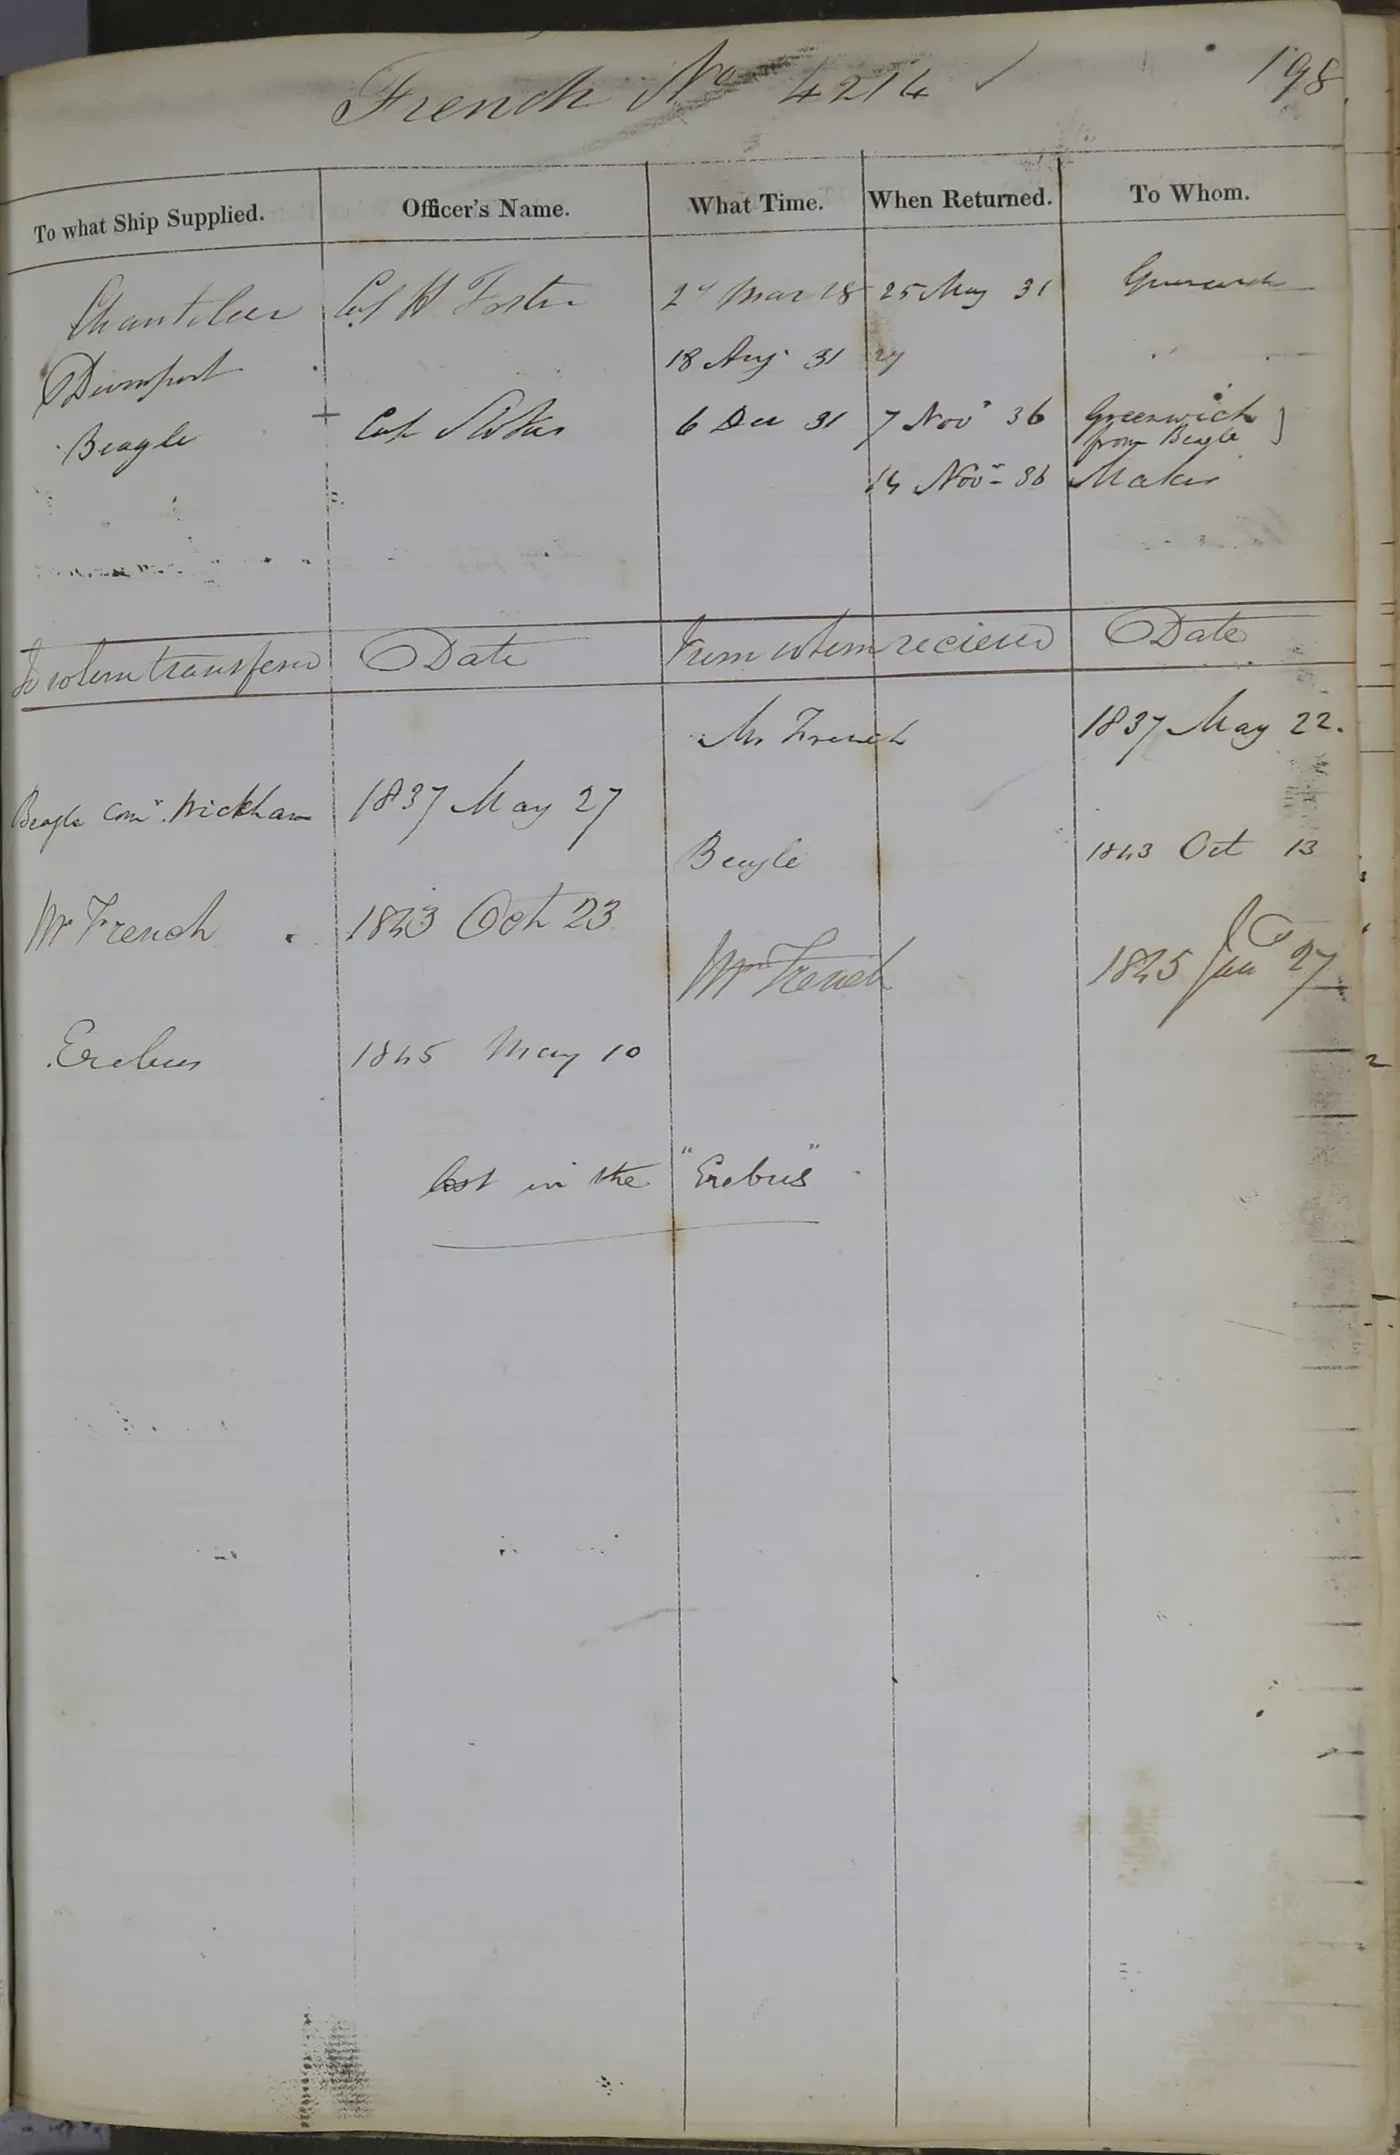 French No 4214 198
To what Ship Supplied. Officer's Name. What Time. When Returned. To Whom.
Chanticleer Cap H Foster 27 Mar 28 25 May 31 Greenwich
Devonport 18 Aug 31
Beagle Cap 6 Dec 31 7 Novr 36 Greenwich
from Beagle
14 Novr 36 Maker
To whom transferd Date From whom recieved Date
Mr French 1837 May 22.
Beagle Comr. Wickham 1837 May 27
Beagle 1843 Oct 13
Mr French 1843 Oct 23
Mr French 1845 Jan 27
Erebus 1845 May 10
lost in the "Erebus"